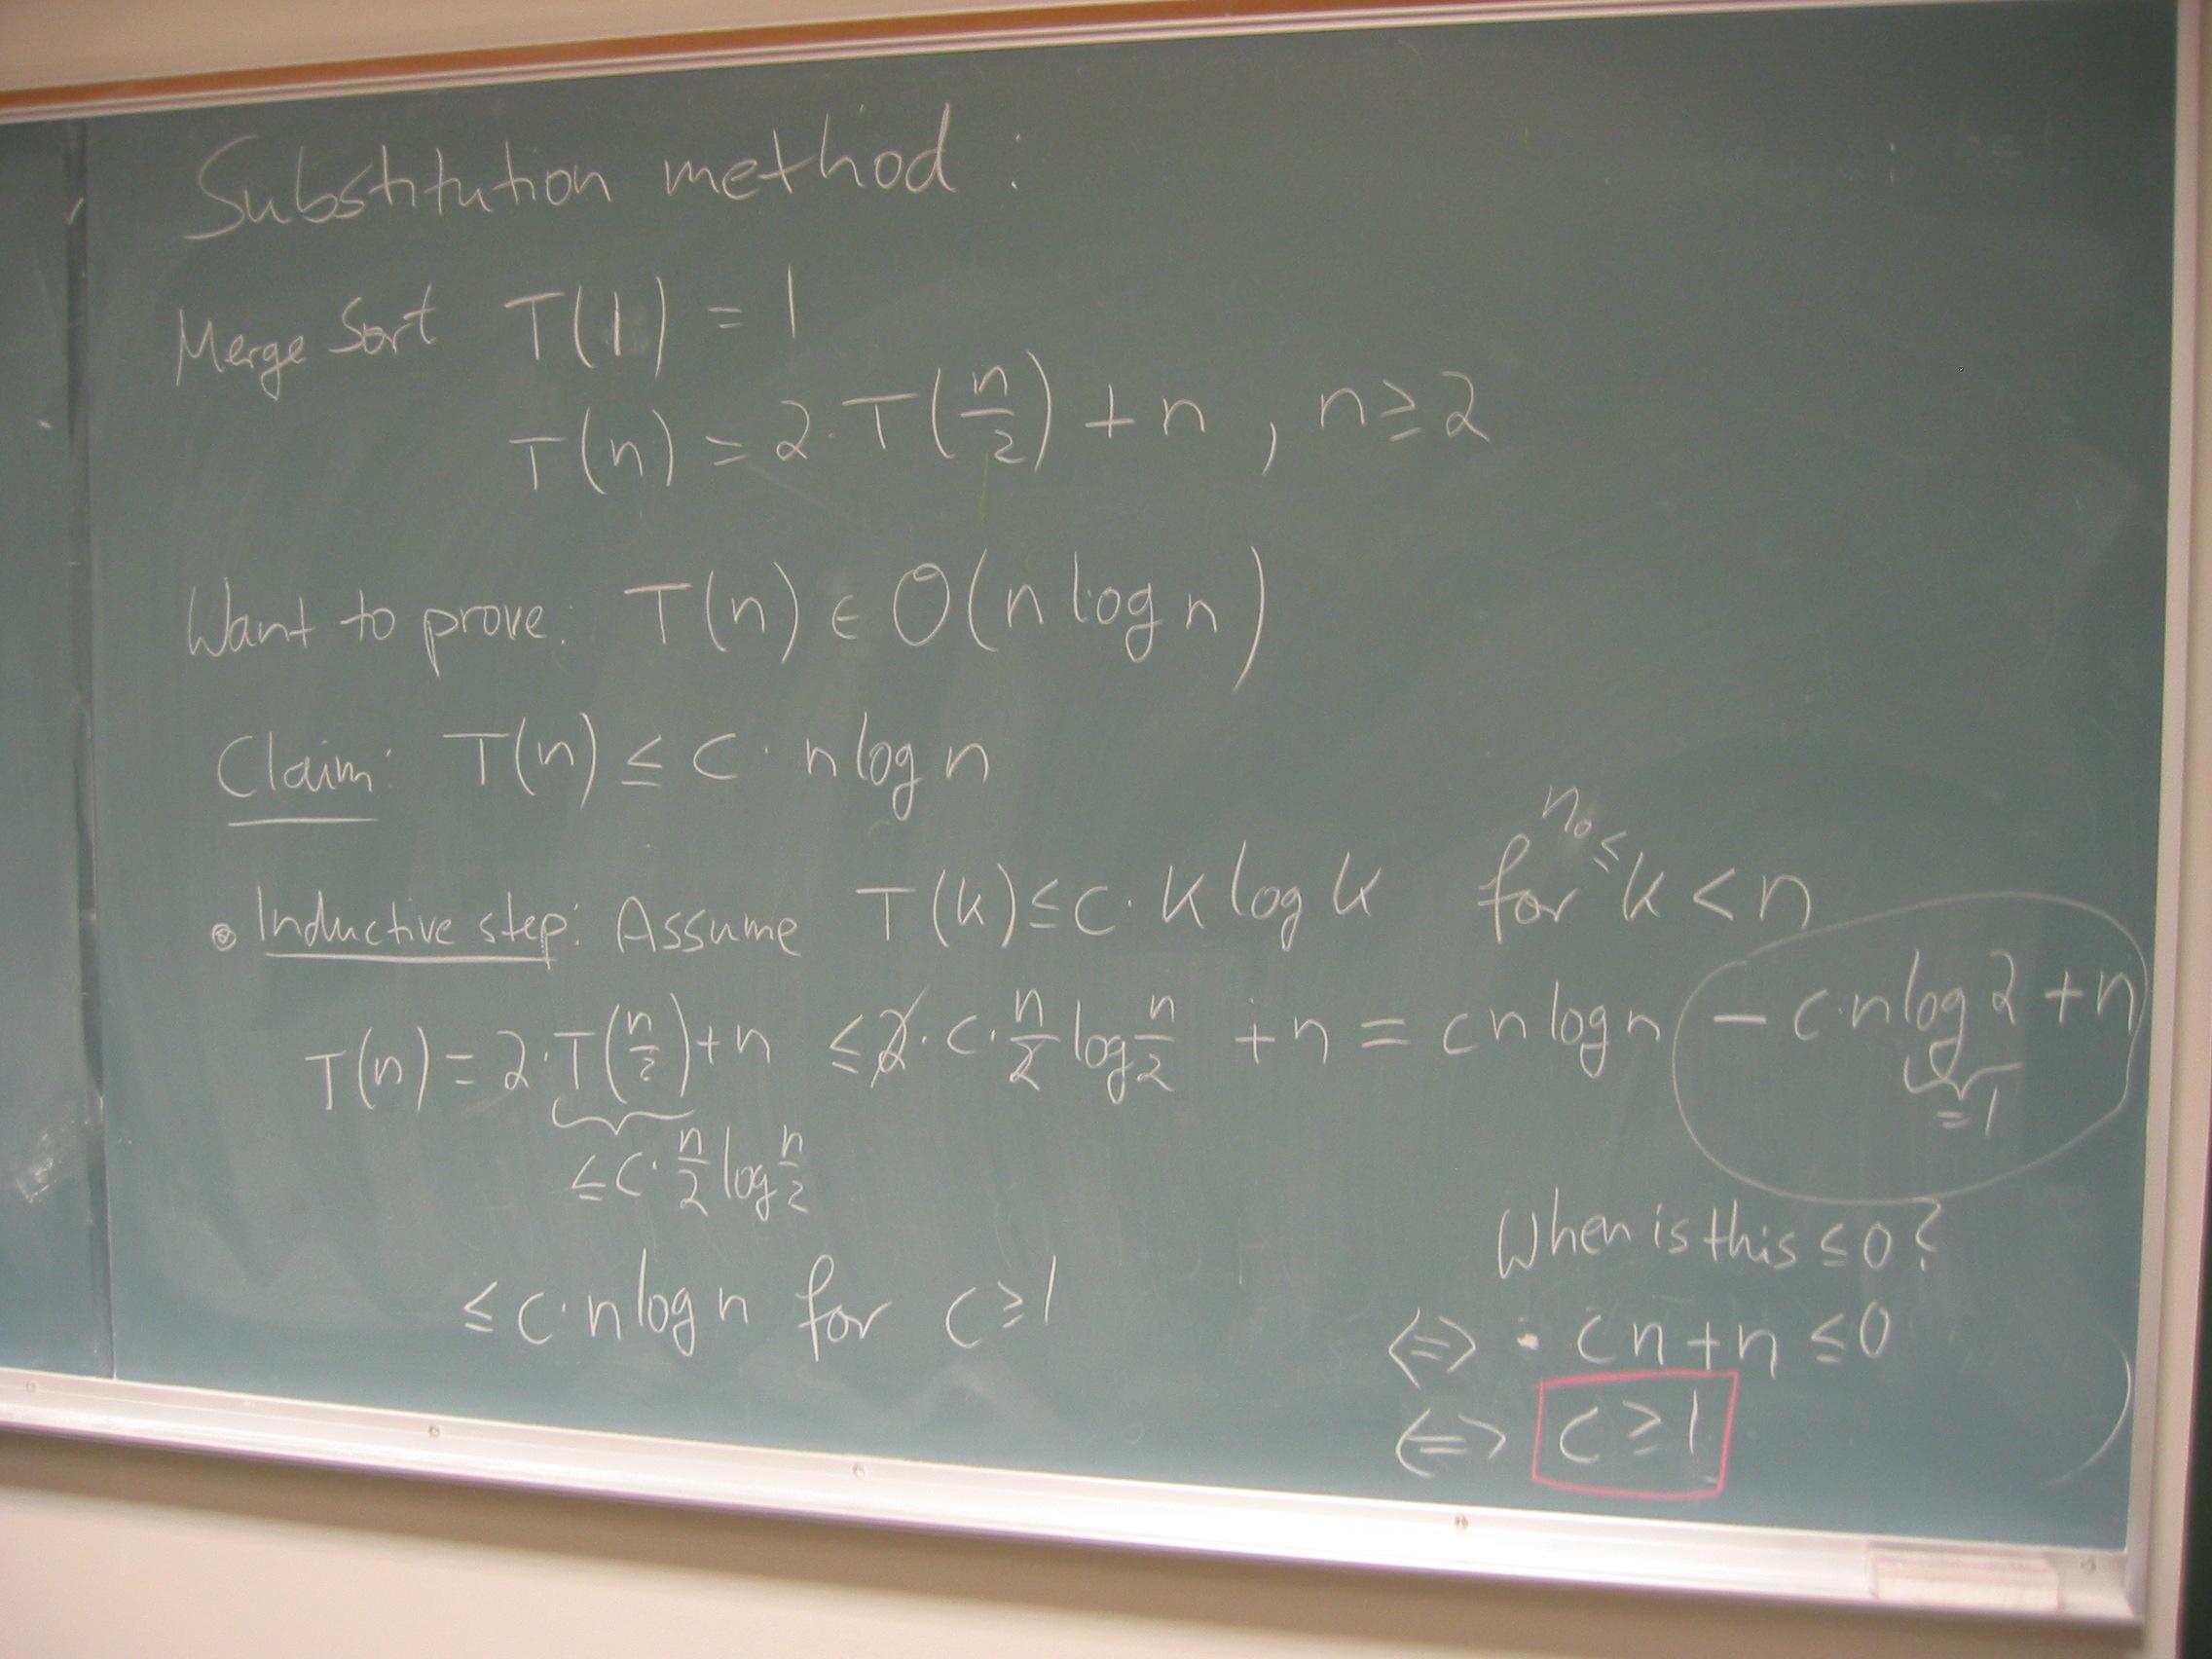 Substitution method :
Merge Sort T(1) = 1
T(n) = 2·T(n/2) + n , n ≥ 2
Want to prove: T(n) ∈ O(n log n)
Claim: T(n) ≤ c · n log n
• Inductive step: Assume T(k) ≤ c · k log k for n₀ ≤ k < n
T(n) = 2·T(n/2) + n ≤ 2·c·n/2 log n/2 + n = c n log n - c·n log 2 + n
= 1
≤ c·n/2 log n/2
When is this ≤ 0?
≤ c·n log n for c ≥ 1
⇔ - cn + n ≤ 0
⇔ c ≥ 1